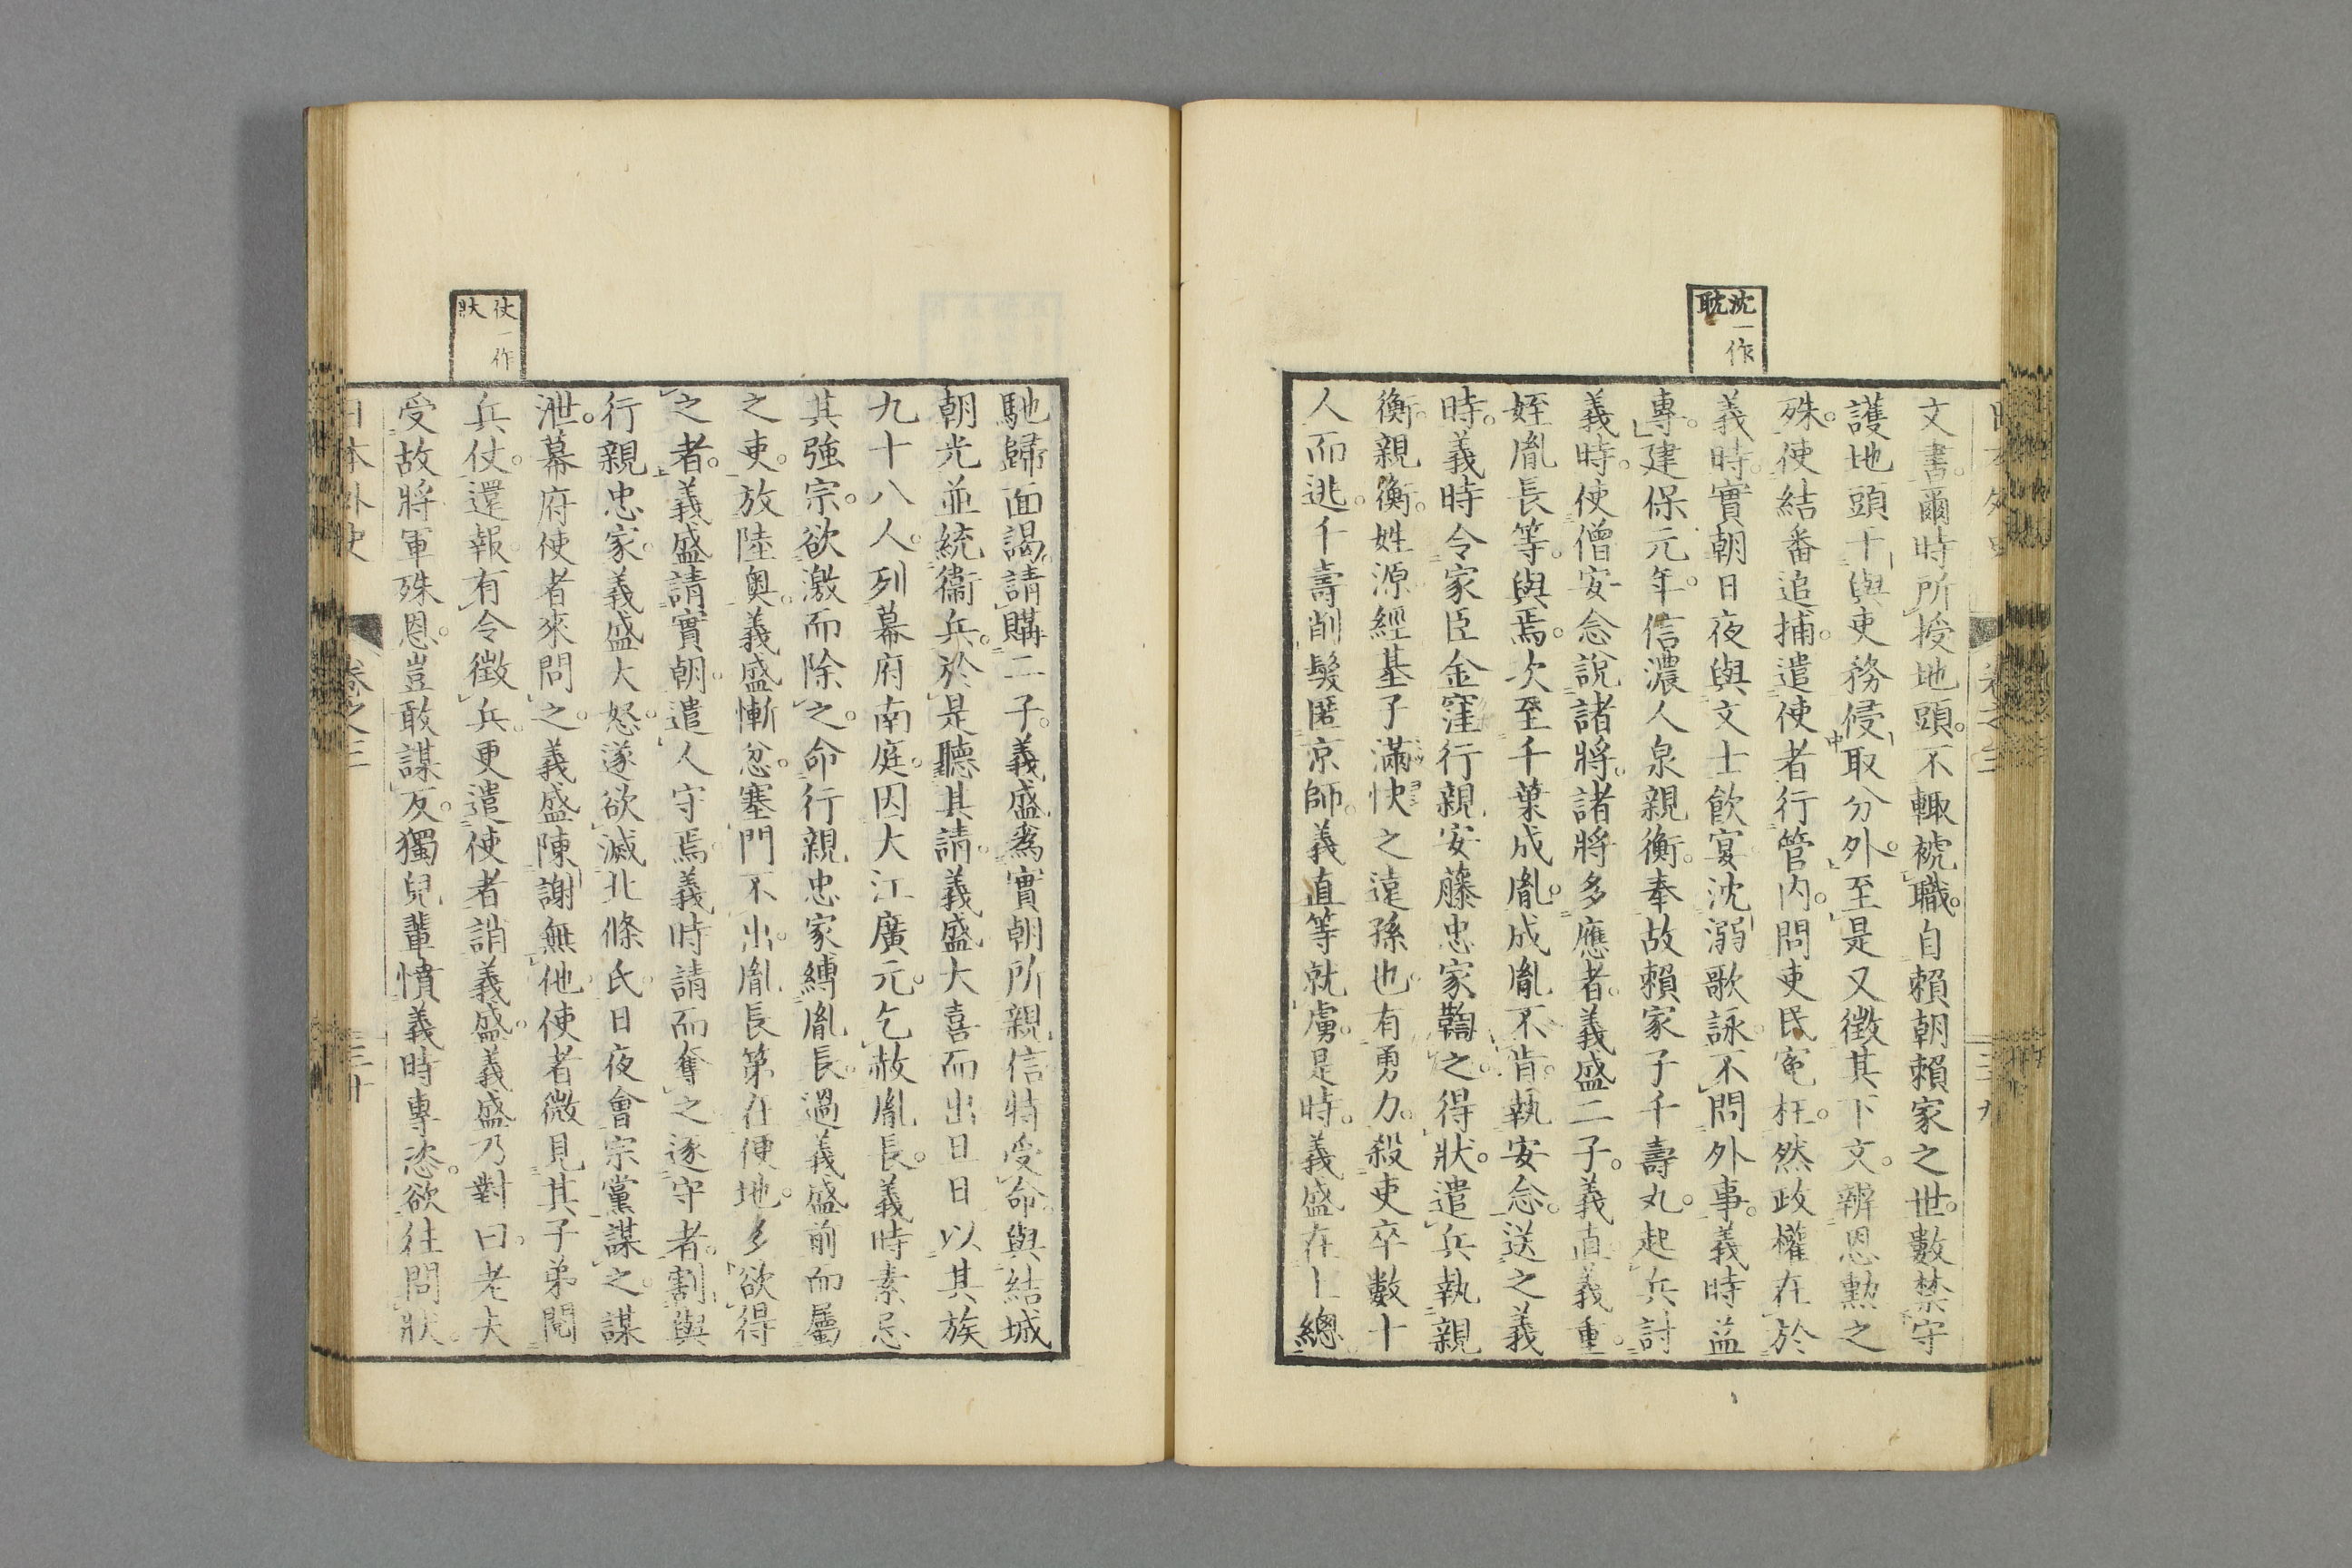 沈一作
耽
文書。爾時所授地頭。不輙褫職。自賴朝賴家之世。數禁守
護地頭干與吏務侵取分外。至是又徵其下文。辨恩勲之
殊。使結番追捕。遣使者行管內。問吏民冤枉。然政權在於
義時。實朝日夜與文士飲宴沈溺歌詠。不問外事。義時益
專。建保元年。信濃人泉親衡。奉故賴家子千壽丸。起兵討
義時。使僧安念說諸將。諸將多應者。義盛二子。義直義重。
姪胤長等。與焉。次至千葉成胤。成胤不肯。執安念。送之義
時。義時令家臣金窪行親安藤忠家鞫之。得狀。遣兵執親
衡。親衡。姓源經基子滿快之遠孫也。有勇力。殺吏卒數十
人而逃。千壽削髮匿京師。義直等就虜。是時。義盛在上總
馳歸面謁。請購二子。義盛爲實朝所親信。特受命。與結城
朝光並統衞兵。於是聽其請。義盛大喜而出。旦日以其族
九十八人。列幕府南庭。因大江廣元。乞赦胤長。義時素忌
其強宗。欲激而除之。命行親忠家縛胤長。過義盛前而屬
之吏。放陸奥。義盛慚忿。塞門不出。胤長第在便地。多欲得
之者。義盛請實朝。遣人守焉。義時請而奪之逐守者。割與
行親忠家。義盛大怒。遂欲滅北條氏。日夜會宗黨謀之。謀
泄。幕府使者來問之。義盛陳謝無他。使者微見其子弟閱
兵仗。還報。有令徵兵。更遣使者誚義盛。義盛乃對曰。老夫
受故將軍殊恩。豈敢謀反。獨兒輩憤義時專恣。欲往問狀。
日本外史 卷之三 三十
仗一作
狀